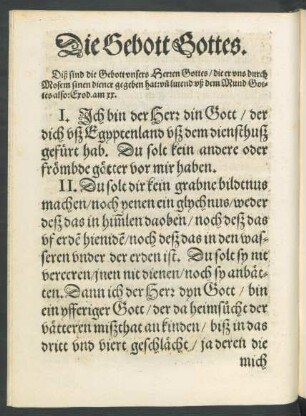 Die Gebott Gottes.
Diß sind die Gebott vnsers Herren Gottes / die er vns durch
Mosem sinen diener gegeben hat vñ lutend vß dem Mund Got-
tes also: Exod. am xx.
I. Ich bin der Herr din Gott / der
dich vß Egyptenland vß dem diensthuß
gefürt hab. Du solt kein andere oder
frömbde götter vor mir haben.
II. Du solt dir kein grabne bildtnus
machen / noch yenen ein glychnus / weder
deß das in him̃len daoben / noch deß das
vf erdē hienidē / noch deß das in den was-
seren vnder der erden ist. Du solt sy nit
vereeren / jnen nit dienen / noch sy anbät-
ten. Dann ich der Herr dyn Gott / bin
ein yfferiger Gott / der da heimsücht der
vätteren mißthat an kinden / biß in das
dritt vnd viert geschlächt / ja deren die
mich